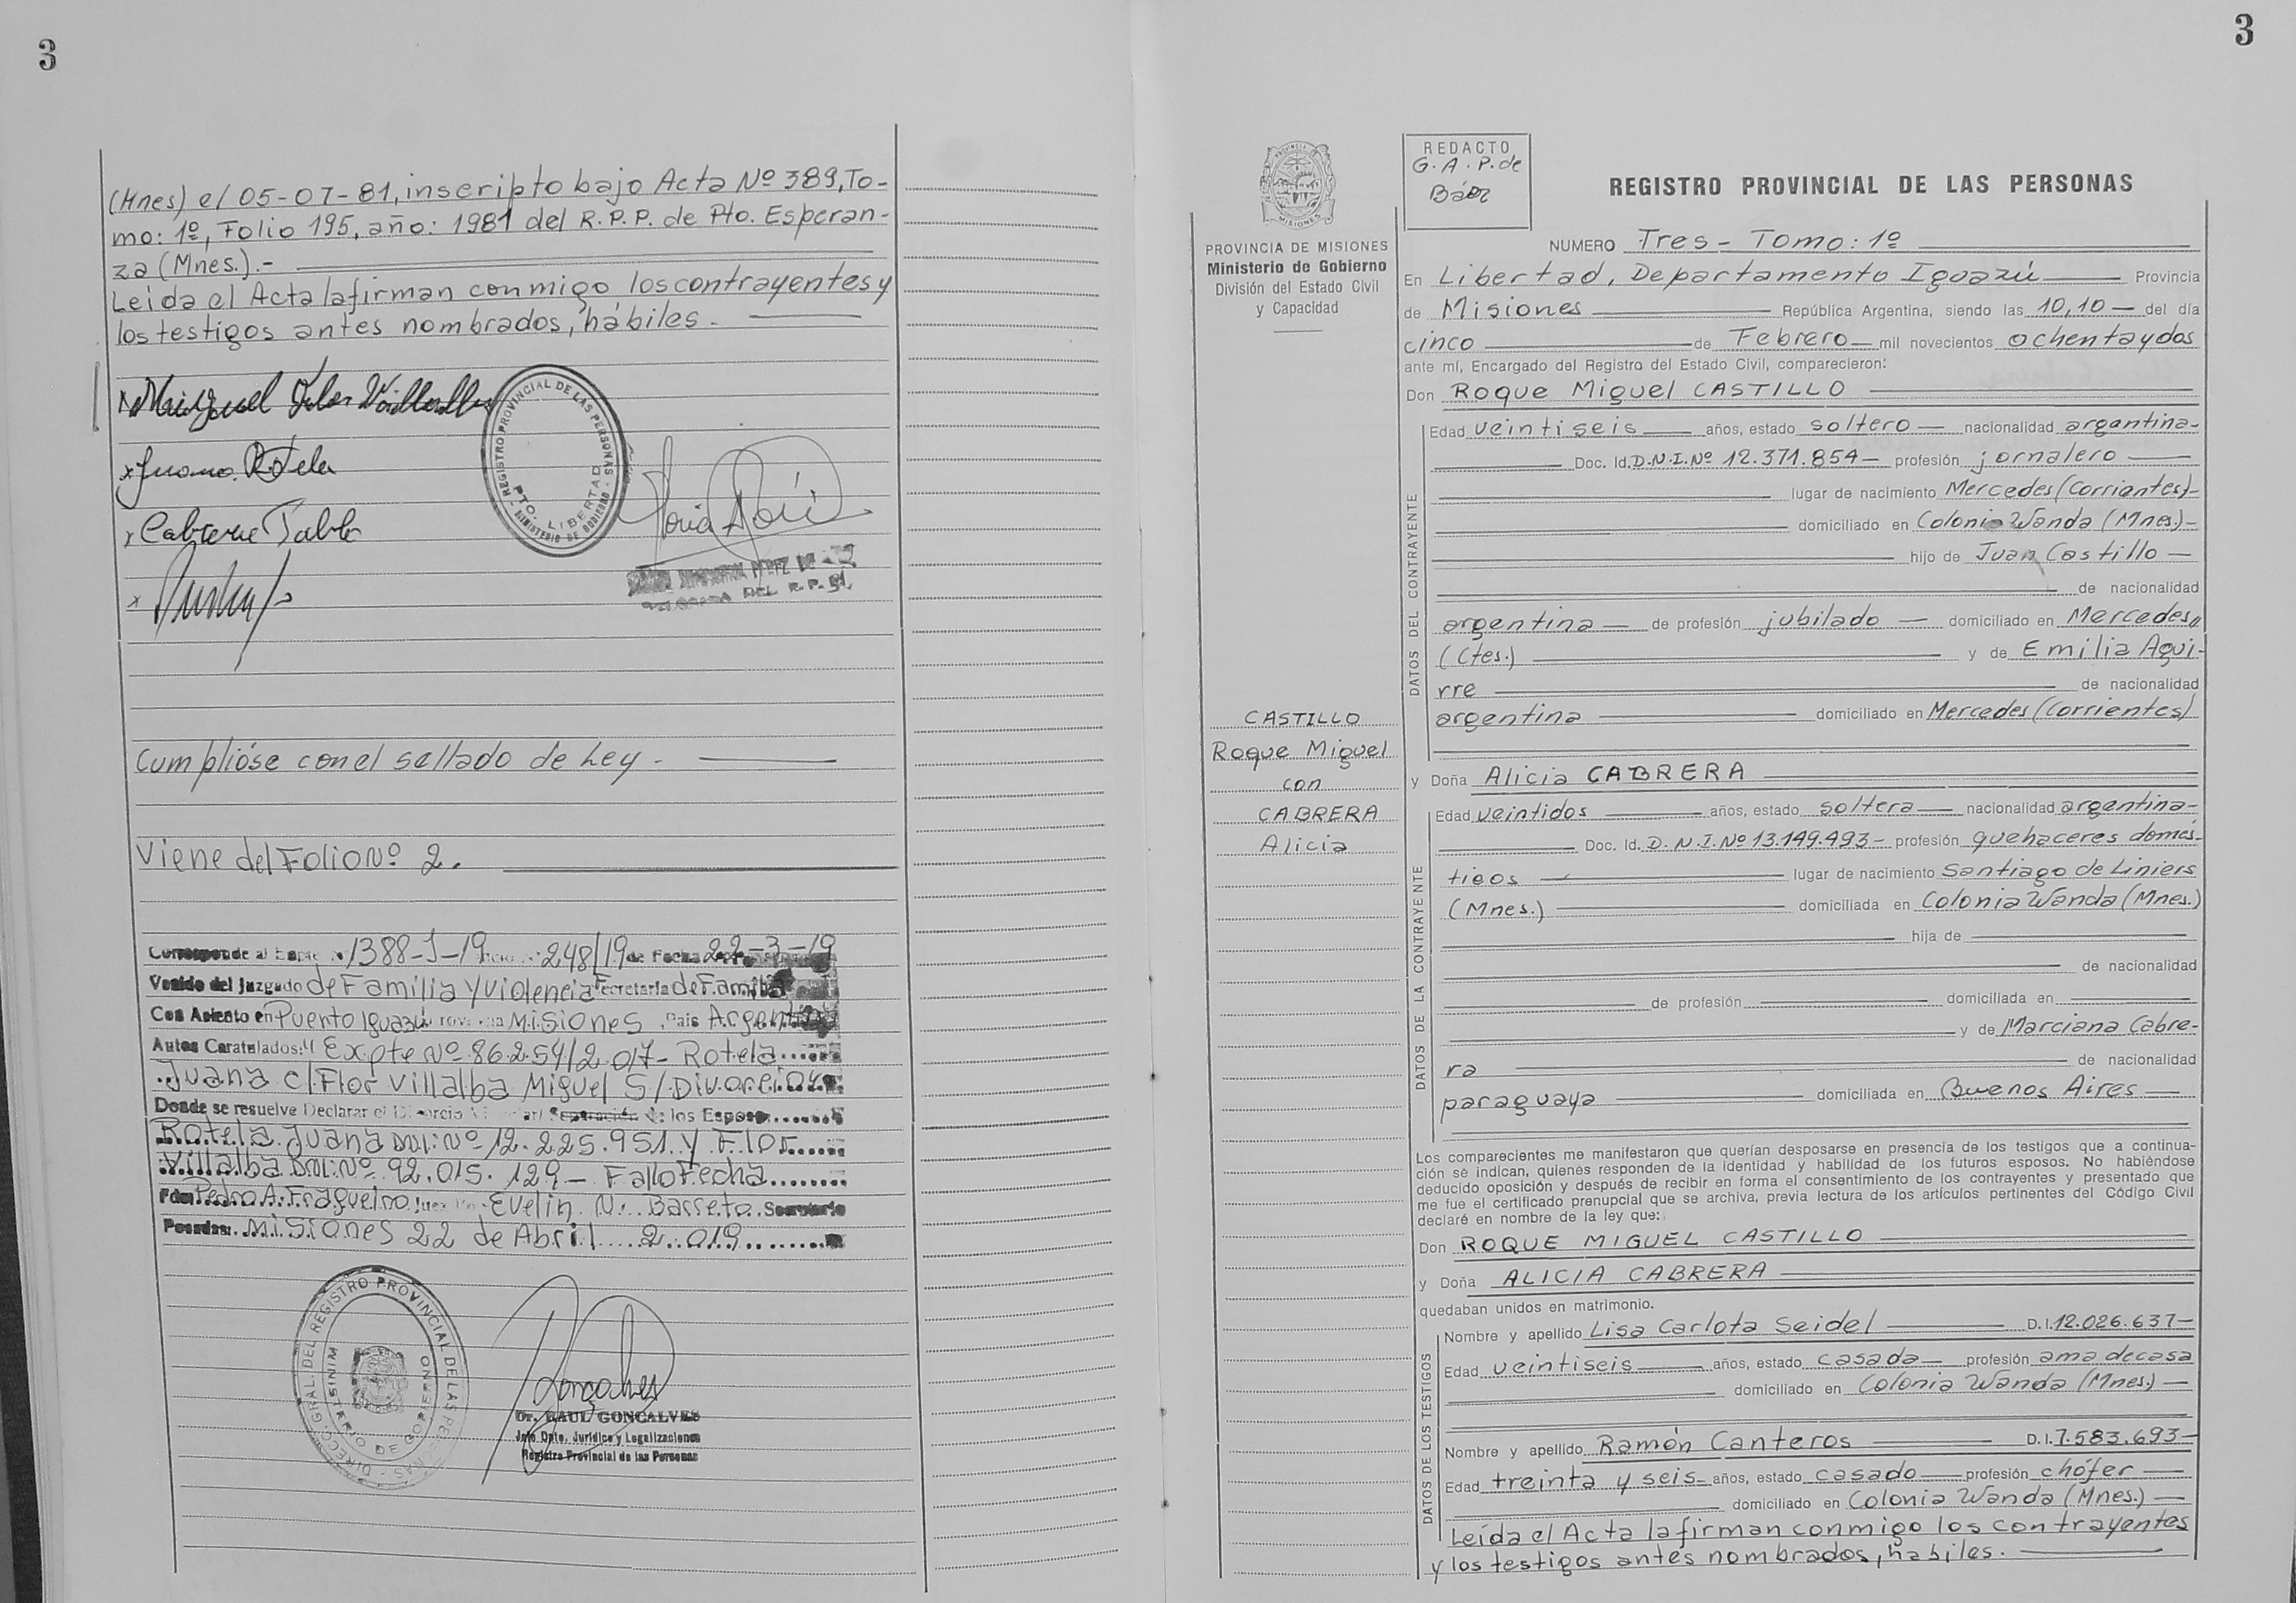 3
(Mnes) el 05-07-81, inscripto bajo Acta Nº 389, To-
mo: 1º, Folio 195, año: 1981 del R.P.P. de Pto. Esperan-
za (Mnes.).-
Leida el Acta la firman conmigo los contrayentes y
los testigos antes nombrados, hábiles.
Juana Rotela
Cabrera
REGISTRO PROVINCIAL DE LAS PERSONAS
MINISTERIO DE GOBIERNO
PTO. LIBERTAD
DEL R.P.P.
Cumplióse con el sellado de Ley -
Viene del Folio Nº 2.
Corresponde al Expte Nº 1388-J-19 Oficio Nº 248/19 de Fecha 22-3-19
Venido del Juzgado de Familia y Violencia Secretaria de Familia
Con Asiento en Puerto Iguazú Provincia Misiones Pais Argentina
Autos Caratulados: "Expte Nº 86254/2017- Rotela
Juana c/ Flor Villalba Miguel S/ Divorcio
Donde se resuelve Declarar el Divorcio Separación de los Esposos
Rotela Juana DNI: Nº 12.225.951 y Flor
Villalba DNI: Nº 92.015.129 - Fallo Fecha
Fdo: Pedro A. Fragueiro Juez Evelin N. Barreto Secretario
Posadas: Misiones 22 de Abril 2.019
DIRECC. GRAL. DEL REGISTRO PROVINCIAL DE LAS PERSONAS
MINISTERIO DE GOBIERNO
Dr. RAUL GONCALVES
Jefe Dpto. Jurídico y Legalizaciones
Registro Provincial de las Personas
3
PROVINCIA DE MISIONES
Ministerio de Gobierno
División del Estado Civil
y Capacidad
REDACTO
G.A.P. de
Báez
REGISTRO PROVINCIAL DE LAS PERSONAS
NUMERO Tres - Tomo: 1º
En Libertad, Departamento Iguazú Provincia
de Misiones República Argentina, siendo las 10,10 del día
cinco de Febrero mil novecientos ochenta y dos
ante mí, Encargado del Registro del Estado Civil, comparecieron:
Don Roque Miguel CASTILLO
DATOS DEL CONTRAYENTE
Edad veintiseis años, estado soltero nacionalidad argentina-
Doc. Id. D.N.I. Nº 12.371.854- profesión jornalero
lugar de nacimiento Mercedes (Corrientes)-
domiciliado en Colonia Wanda (Mnes.)-
hijo de Juan Castillo
de nacionalidad
argentina de profesión jubilado domiciliado en Mercedes
(Ctes.) y de Emilia Agui-
rre de nacionalidad
argentina domiciliado en Mercedes (Corrientes)
CASTILLO
Roque Miguel
con
CABRERA
Alicia
y Doña Alicia CABRERA
DATOS DE LA CONTRAYENTE
Edad veintidos años, estado soltera nacionalidad argentina-
Doc. Id. D.N.I. Nº 13.149.493- profesión quehaceres domés-
ticos lugar de nacimiento Santiago de Liniers
(Mnes.) domiciliada en Colonia Wanda (Mnes.)
hija de
de nacionalidad
de profesión domiciliada en
y de Marciana Cabre-
ra de nacionalidad
paraguaya domiciliada en Buenos Aires
Los comparecientes me manifestaron que querían desposarse en presencia de los testigos que a continua-
ción se indican, quienes responden de la identidad y habilidad de los futuros esposos. No habiéndose
deducido oposición y después de recibir en forma el consentimiento de los contrayentes y presentado que
me fue el certificado prenupcial que se archiva, previa lectura de los artículos pertinentes del Código Civil
declaré en nombre de la ley que:
Don ROQUE MIGUEL CASTILLO
y Doña ALICIA CABRERA
quedaban unidos en matrimonio.
DATOS DE LOS TESTIGOS
Nombre y apellido Lisa Carlota Seidel D.I. 12.026.637-
Edad veintiseis años, estado casada profesión ama de casa
domiciliado en Colonia Wanda (Mnes.)
Nombre y apellido Ramón Canteros D.I. 7.583.693-
Edad treinta y seis años, estado casado profesión chófer
domiciliado en Colonia Wanda (Mnes.)
Leída el Acta la firman conmigo los contrayentes
y los testigos antes nombrados, hábiles.